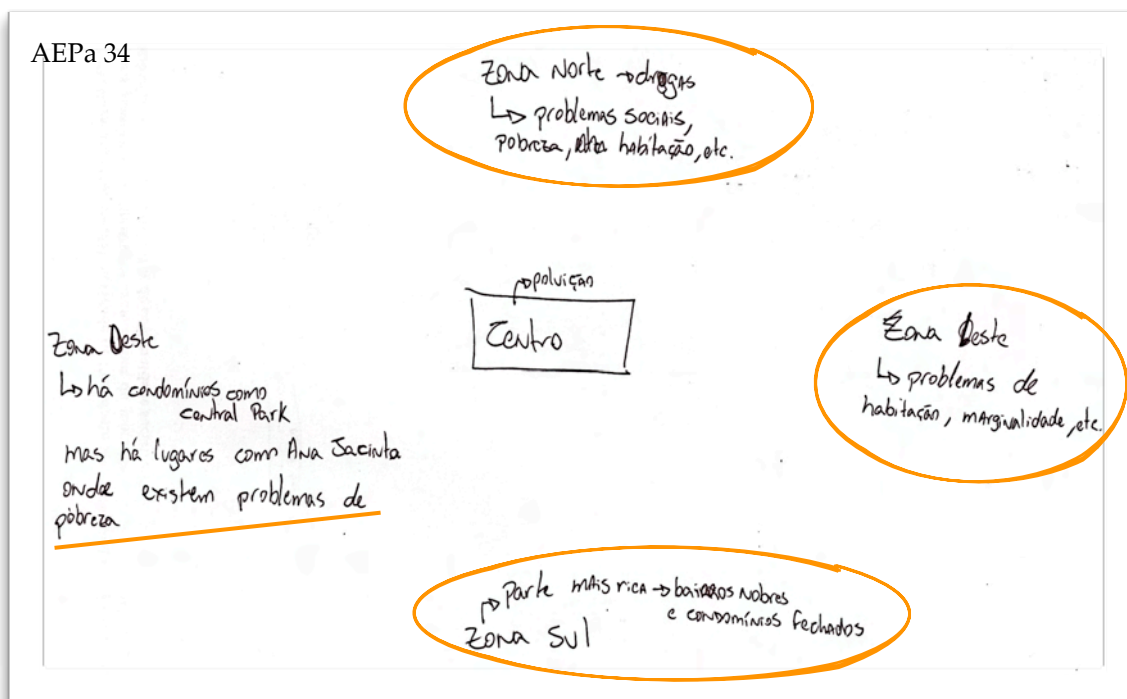 AEPa 34
Zona Norte → drogas
↳ problemas sociais,
pobreza, habitação, etc.
→ poluição
Centro
Zona Oeste
↳ há condomínios como
central Park
mas há lugares como Ana Jacinta
onde existem problemas de
pobreza
Zona Leste
↳ problemas de
habitação, marginalidade, etc.
→ Parte mais rica → bairros nobres
e condomínios fechados
Zona Sul